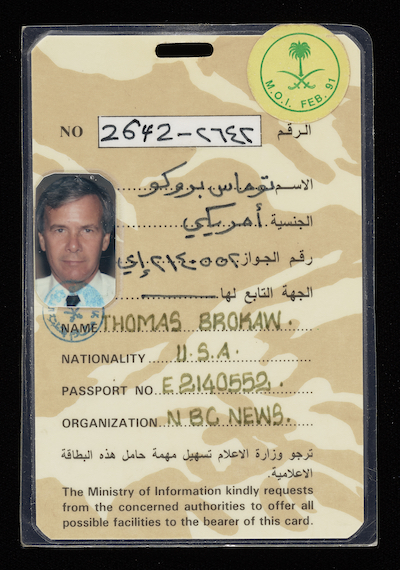 M.O.I. FEB. 91
NO 2642-٢٦٤٢ الرقم
الاسم توماس بروكو
الجنسية أمريكي
رقم الجواز ٢١٤٠٥٥٢ إي
الجهة التابع لها
NAME THOMAS BROKAW.
NATIONALITY U.S.A.
PASSPORT NO. E2140552.
ORGANIZATION NBC NEWS.
ترجو وزارة الاعلام تسهيل مهمة حامل هذه البطاقة
الاعلامية.
The Ministry of Information kindly requests
from the concerned authorities to offer all
possible facilities to the bearer of this card.